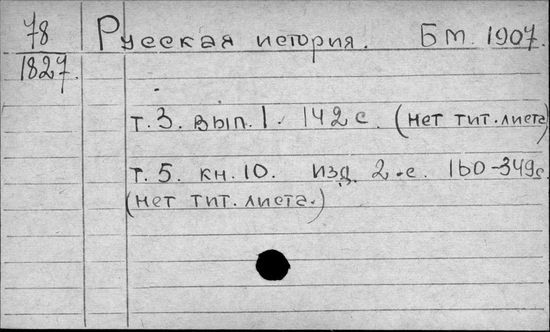 78
1827.
Русская история. Б м. 1907.
т. 3. вып. 1. 142 с. (нет тит. листа)
т. 5. кн. 10. изд. 2-е. 160-349с
(нет тит. листа.)